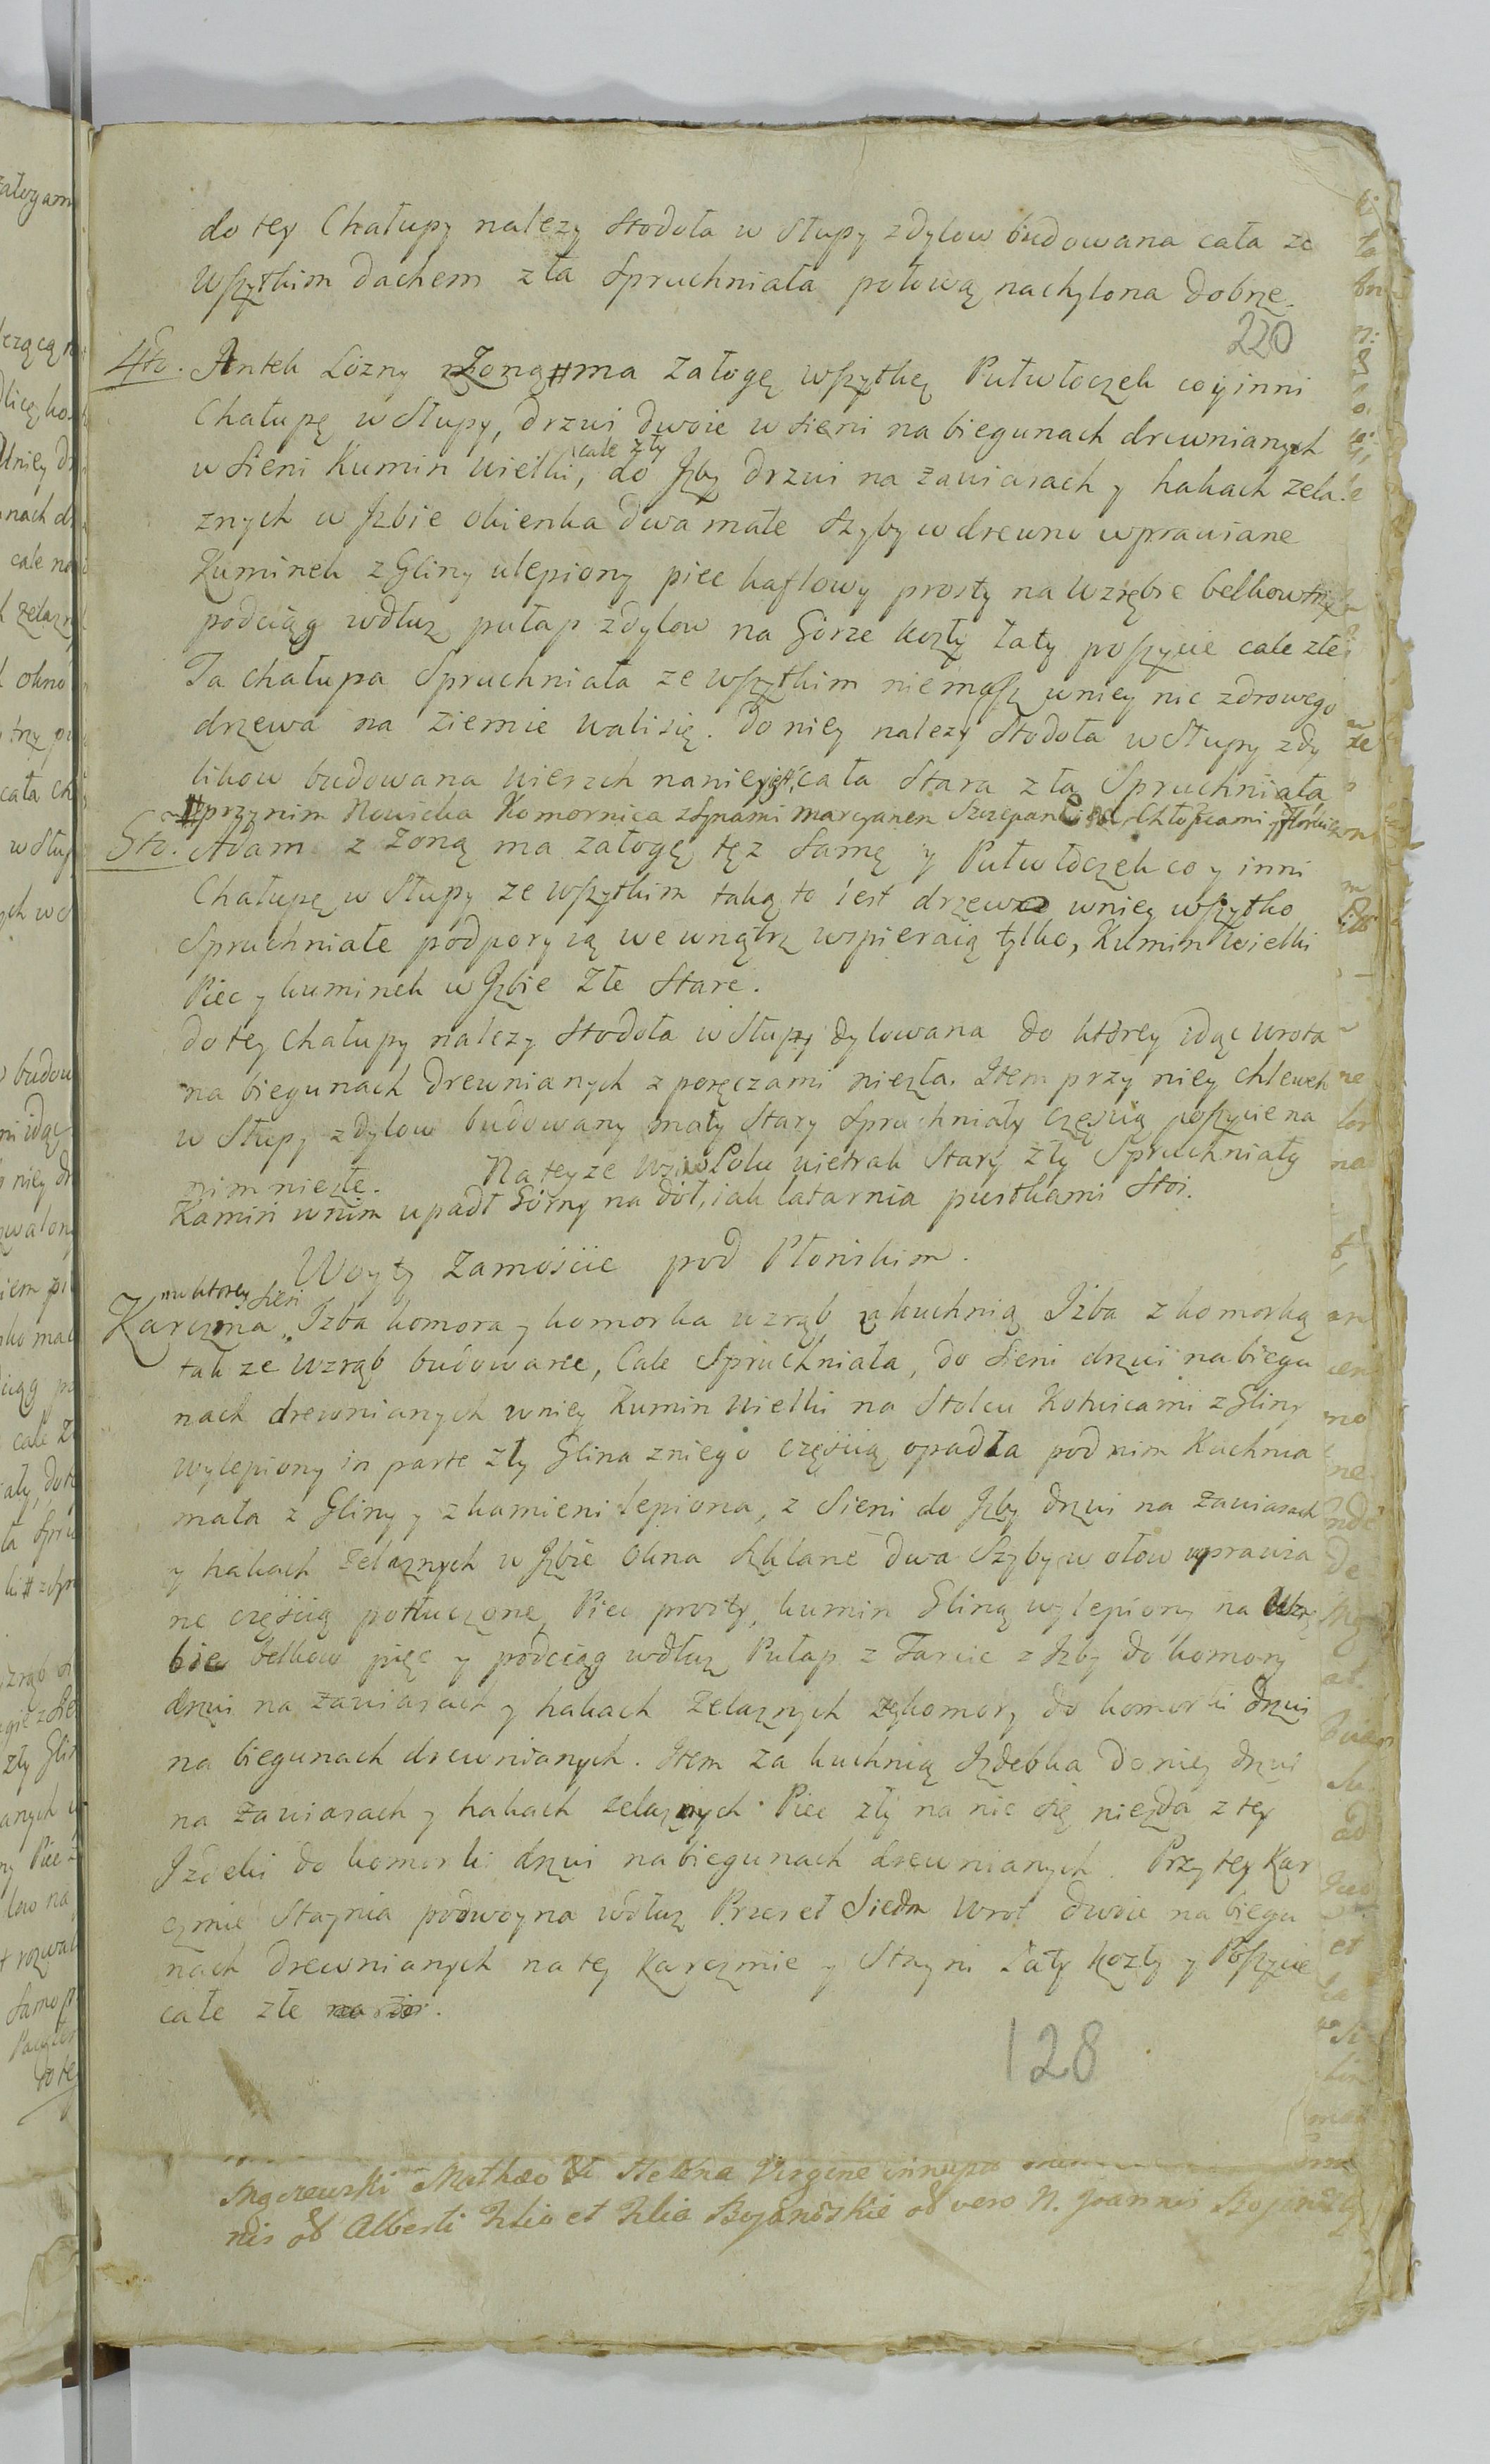 do tey Chałupy nalezy stodoła w Słupy z dylow budowana cała ze
wszytkim dachem zła Spruchniała połową nachylona dobrze.
220
4to. Antek Lózny z Zoną # ma Załogę wszytkę Pułwłoczek co y inni
Chałupę w Słupy, drzwi dwoie w sieni na biegunach drewnianych
cale zły
w sieni Kumin wielki, do Jzby drzwi na zawiasach y hakach zela
znych w Jzbie okienka dwa małe szyby w drewno wprawiane
Kuminek z Gliny ulepiony piec kaflowy prosty na Wzrębie belkow trzy
podciąg wdłuz pułap z dylow na Górze kozły łaty poszycie cale złe
Ta chałupa Spruchniała ze wszytkim niemasz w niey nic zdrowego
drzewa na ziemie wali się. do niey nalezy Stodoła w Słupy z dy
likow budowana wierzch na niey iest, cała Stara zła Spruchniała
# przy nim Nowicka Komornica z synami marcyanem Szczepanem Chłopcami
5to. Adam z Zoną ma załogę tęz Samę y Pułwłoczek co y inni
Chałupę w Słupy ze wszytkim taką to iest drzewo w niey wszytko
Spruchniałe podpory ią wewnątrz wspieraią tylko, Kumin Wielki
Piec y kuminek w Jzbie Złe Stare.
do tey chałupy nalezy Stodoła w Słupy dylowana do ktorey idąc wrota
na biegunach drewnianych z poręczami niezła. Item przy niey chlewek
w Słupy z dylow budowany mały Stary Spruchniały częścią poszycie na
nim niezłe. Na teyze Wsi w Polu wietrak Stary zły Spruchniały
Kamień w nim upadł Górny na doł, iak latarnia pustkami Stoi.
Woyty Zamoście pod Płońskim.
w ktorey sieni
Karczma Izba komora y komorka wzrąb za kuchnią Izba z komorką
tak ze wzrąb budowane, Cale Spruchniała, do Sieni drzwi na biegu
nach drewnianych w niey Kumin Wielki na Stolcu Kotwicami z Gliny
wylepiony in parte zły Glina z niego częścią opadła pod nim Kuchnia
mała z Gliny y z kamieni lepiona, z Sieni do Jzby drzwi na zawiasach
y hakach zelaznych w Jzbie Okna szklane dwa Szyby w ołow wprawia
ne częścią potłuczone, Piec prosty, kumin Gliną wylepiony na Wzrę
bie belkow pięc y podciąg wdłuz Pułap z Tarcic z Jzby do komory
drzwi na zawiasach y hakach Zelaznych z komory do komorki drzwi
na biegunach drewnianych. Item za kuchnią Jzdebka do niey drzwi
na zawiasach y hakach zelaznych Piec zły na nic się niezda z tey
Jzdebki do komorki drzwi na biegunach drewnianych. Przy tey Kar
czmie Staynia podwoyna wdłuz Przeseł Siedm Wrot dwoie na biegu
nach drewnianych na tey Karczmie y Stayni Łaty kozły y Poszycie
całe złe
128
Mathæo Helena Virgine innupta
nis Alberti Filio et Filia vero N. Joannis